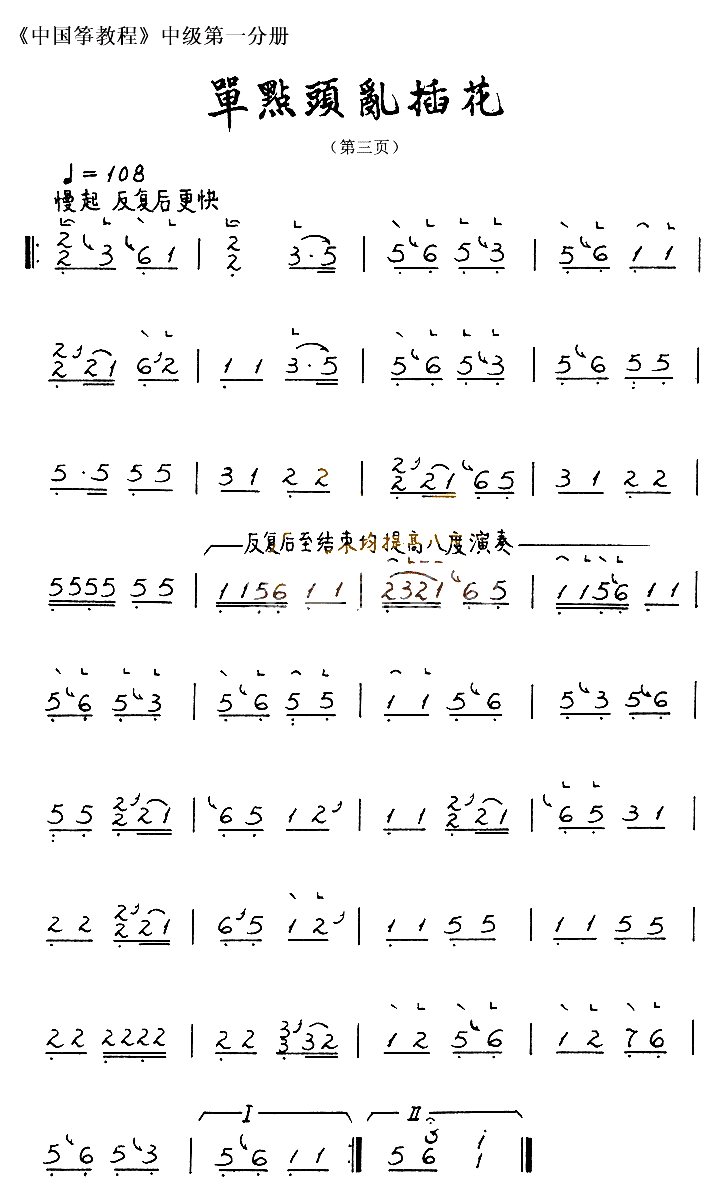 《中国筝教程》中级第一分册
單點頭亂插花
（第三页）
♩=108
慢起 反复后更快
2/2 3 6 1 | 2/2 3·5 | 5 6 5 3 | 5 6 1 1 |
2/2 2 1 6 2 | 1 1 3·5 | 5 6 5 3 | 5 6 5 5 |
5·5 5 5 | 3 1 2 2 | 2/2 2 1 6 5 | 3 1 2 2 |
反复后至结束均提高八度演奏
5555 5 5 | 1156 1 1 | 2321 6 5 | 1156 1 1 |
5 6 5 3 | 5 6 5 5 | 1 1 5 6 | 5 3 5 6 |
5 5 2/2 2 1 | 6 5 1 2 | 1 1 2/2 2 1 | 6 5 3 1 |
2 2 2/2 2 1 | 6 5 1 2 | 1 1 5 5 | 1 1 5 5 |
2 2 2222 | 2 2 3/3 3 2 | 1 2 5 6 | 1 2 7 6 |
I II
5 6 5 3 | 5 6 1 1 :| 5 3/6 i/1 ||